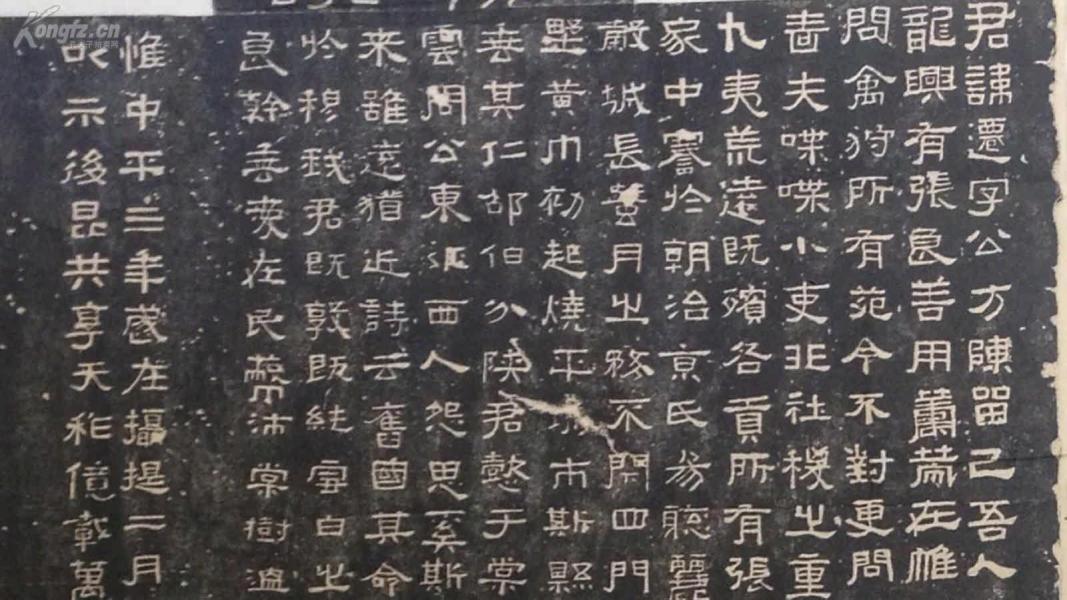 Kongfz.cn
君諱遷字公方陳留己吾人
龍興有張良善用籌策在帷
問禽狩所有苑令不對更問
嗇夫喋喋小吏非社稷之重
九夷荒遠既殯各貢所有張
家中謇於朝治京氏易聰麗
穀城長蠶月之務不閉四門
壄黃巾初起燒平城市斯縣
喪其仁邵伯分陝君懿于棠
雲周公東征西人怨思奚斯
来雖遠猶近詩云舊國其命
於穆我君既敦既純雪白之
良幹垂愛在民蔽沛棠樹溫
惟中平三年歲在攝提二月
示後昆共享天祚億載萬